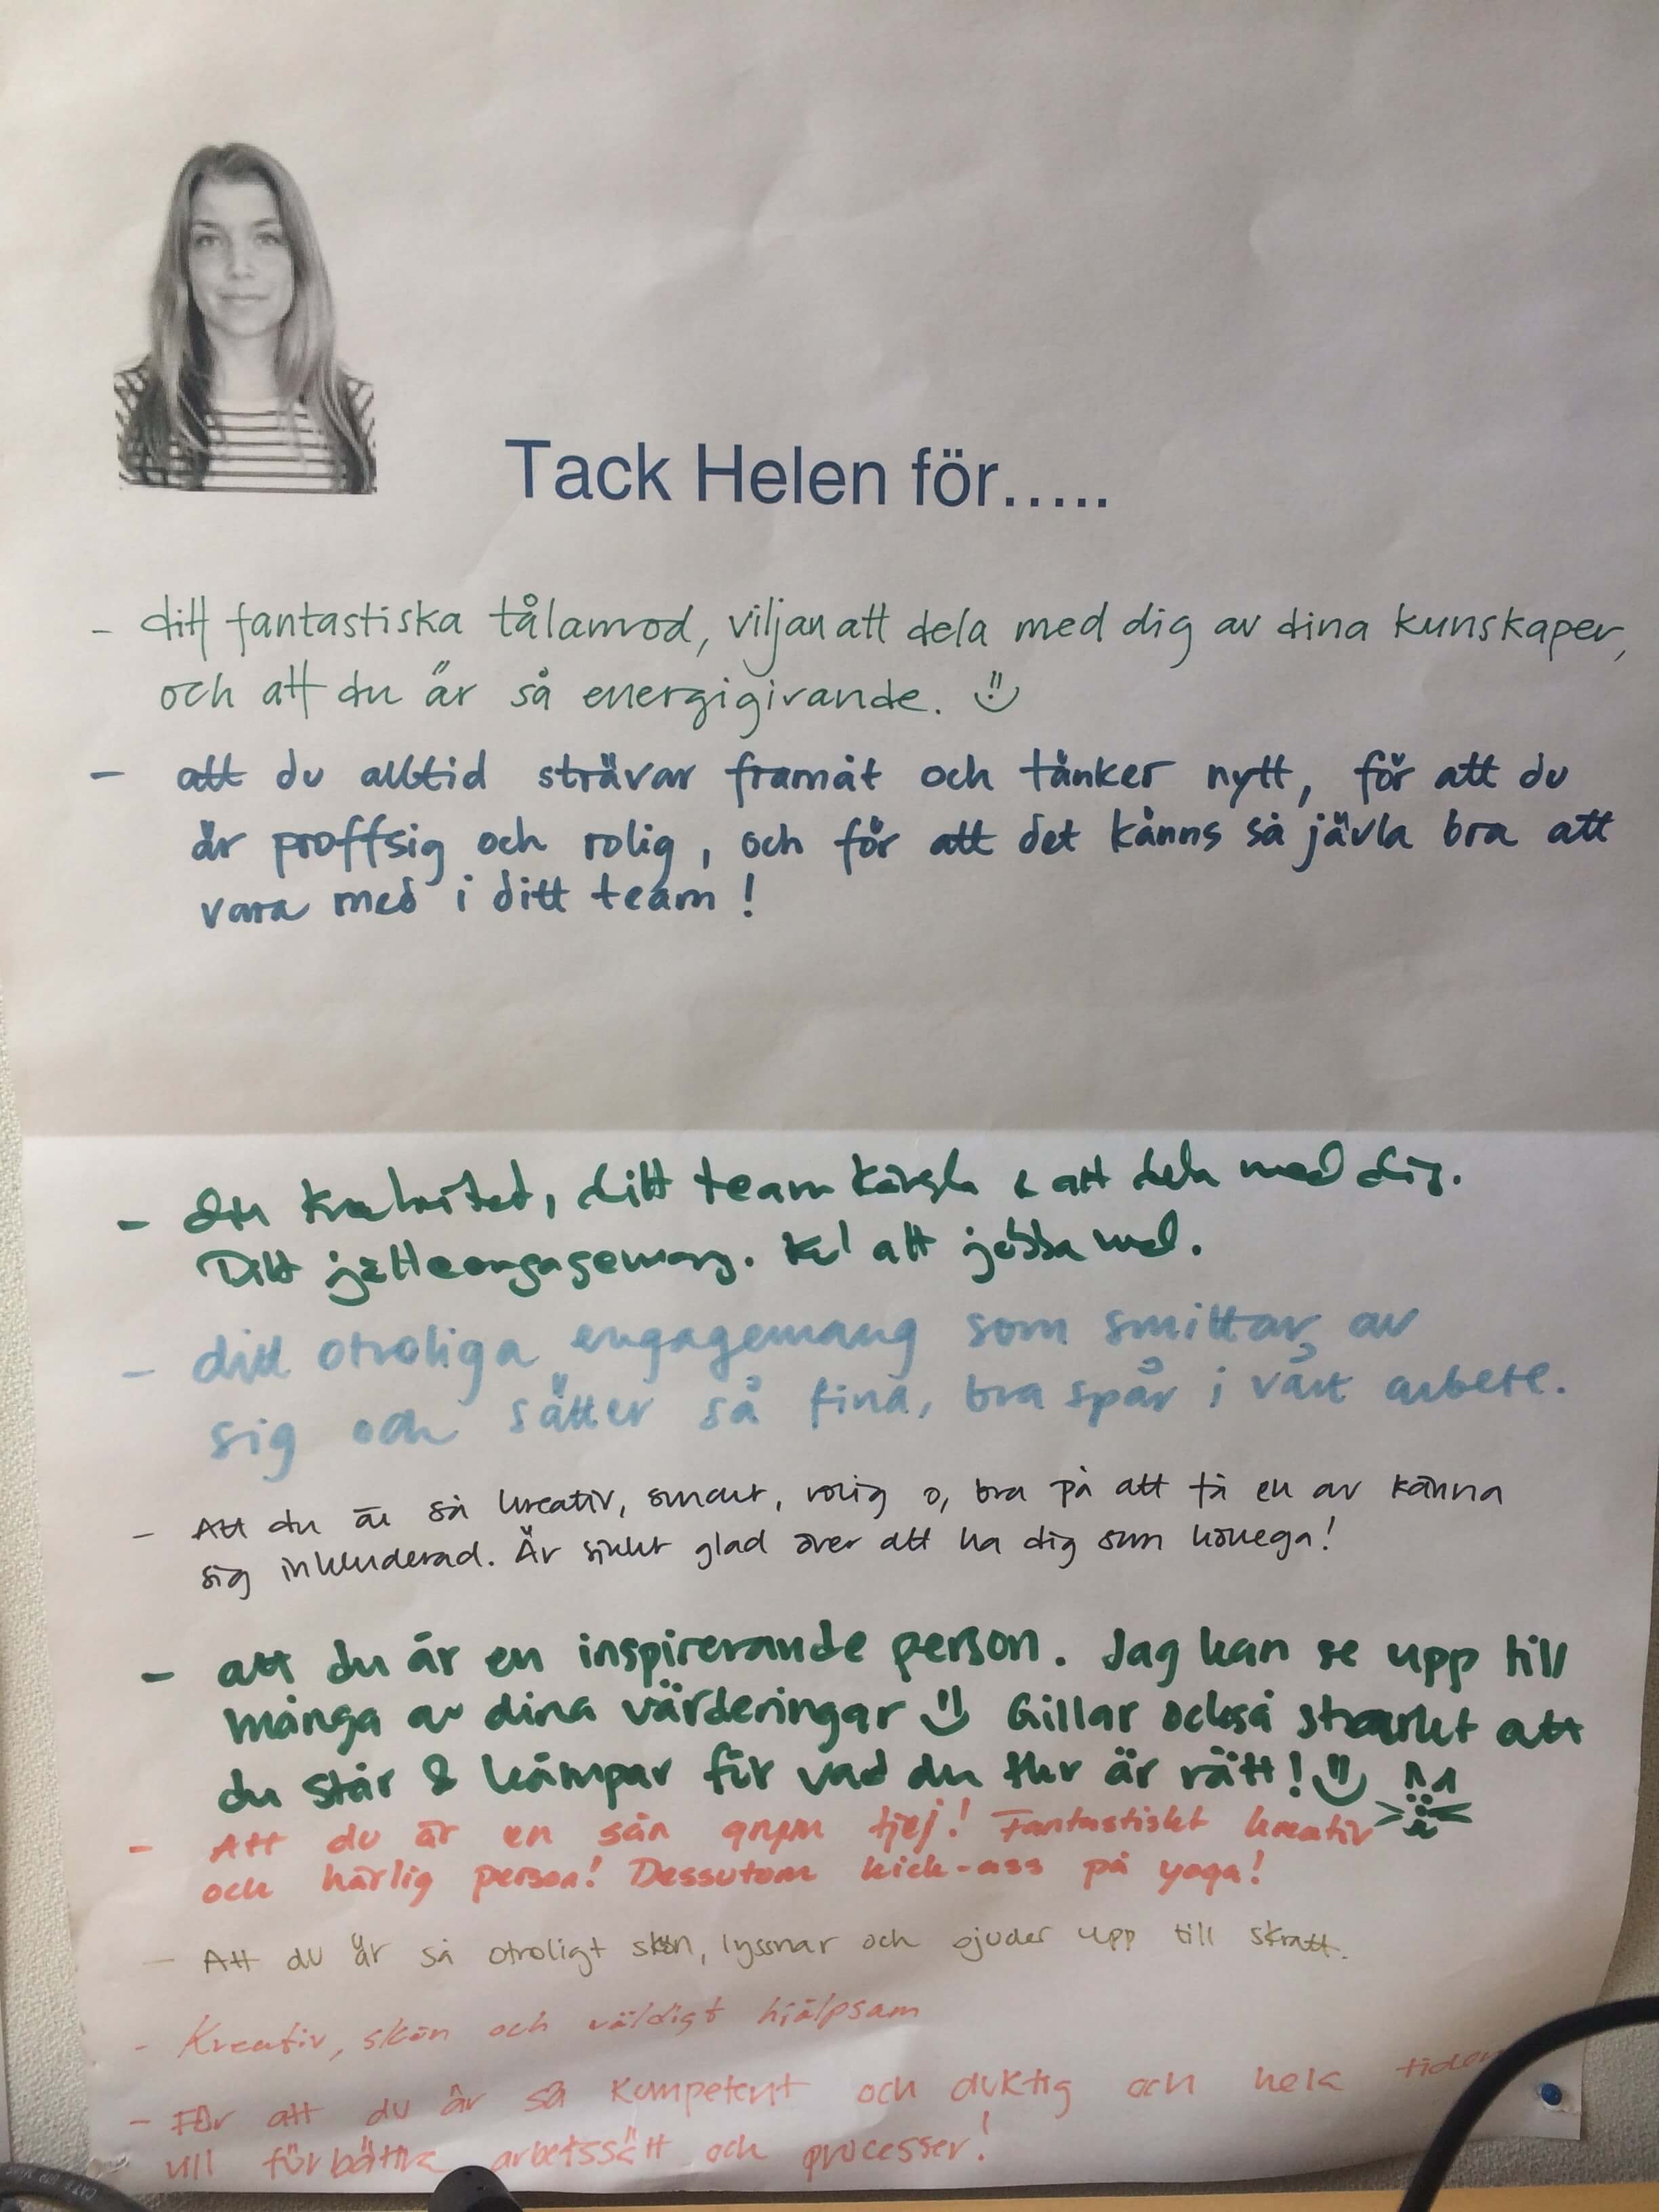 Tack Helen för.....
- ditt fantastiska tålamod, viljan att dela med dig av dina kunskaper,
och att du är så energigivande.
- att du alltid strävar framåt och tänker nytt, för att du
är proffsig och rolig, och för att det känns så jävla bra att
vara med i ditt team!
- din ditt team känsla & att dela med dig.
Ditt jätteengagemang. Kul att jobba med.
- ditt otroliga engagemang som smittar av
sig och sätter så fina, bra spår i vårt arbete.
- Att du är så kreativ, smart, rolig o, bra på att få en av känna
sig inkluderad. Är sjukt glad över att ha dig som kollega!
- att du är en inspirerande person. Jag kan se upp till
många av dina värderingar Gillar också starkt att
du står & kämpar för vad du tkr är rätt!
- Att du är en sån grym tjej! Fantastiskt kreativ
och härlig person! Dessutom kick-ass på yoga!
- Att du är så otroligt skön, lyssnar och bjuder upp till skratt.
- Kreativ, skön och väldigt hjälpsam
- För att du är så kompetent och duktig och hela tiden
vill förbättra arbetssätt och processer!